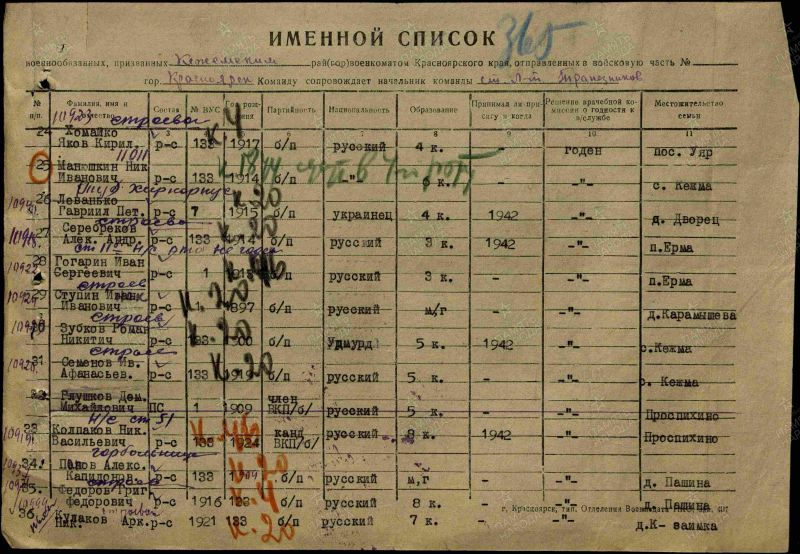 365
ИМЕННОЙ СПИСОК
военнообязанных, призванных Кежемским рай(гор)военкоматом Красноярского края, отправленных в войсковую часть №
гор. Красноярск Команду сопровождает начальник команды ст. л-т. Трапезников
№ п/п Фамилия, имя и отчество Состав № ВУС Год рождения Партийность Национальность Образование Принимал ли присягу и когда Решение врачебной комиссии о годности к в/службе Местожительство семьи
3 7 8 9 10 11
10923 строевой
К, 4
24 Хомайко
Яков Кирил. р-с 133 1917 б/п русский 4 к. - годен пос. Уяр
11011
25 Манюшкин Ник
Иванович р-с 133 1914 б/п -"- 6 к. - -"- с. Кежма
26 Леванько К. 20
Гавриил Пет. р-с 7 1915 б/п украинец 4 к. 1942 -"- д. Дворец
строевой
27 Серебреков К. 20
Алек. Андр. р-с 133 1914 б/п русский 3 к. 1942 -"- п.Ерма
28 Гогарин Иван
Сергеевич р-с 1 1915 б/п русский 3 к. - -"- п.Ерма
строев
29 Ступин Иван К. 20
Иванович р-с 1 1897 б/п русский м/г - -"- д.Карамышева
строев
30 Зубков Роман К. 20
Никитич р-с 133 1900 б/п Удмурд 5 к. 1942 -"- с.Кежма
строев
31 Семенов Ив. К. 20
Афанасьев. р-с 133 1919 б/п русский 5 к. - -"- с. Кежма
32 Глушков Дем. член
Михайлович ПС 1 1909 ВКП/б/ русский 5 к. - -"- Проспихино
Н/С ст 51
33 Колпаков Ник. канд
Васильевич р-с 133 1924 ВКП/б/ русский 8 к. 1942 -"- Проспихино
34. Панов Алекс. К. 20
Капидонов. р-с 133 1909 б/п русский м,г - -"- д. Пашина
строев
35. Федоров Григ К. 4
Федорович р-с 1916 133 б/п русский 8 к. - -"- д. Пашина
г. Красноярск, тип. Отделения
строевой
36. Кулаков Арк. р-с 1921 133 б/п русский 7 к. - -"- д.К- заимка
Ник. К. 20